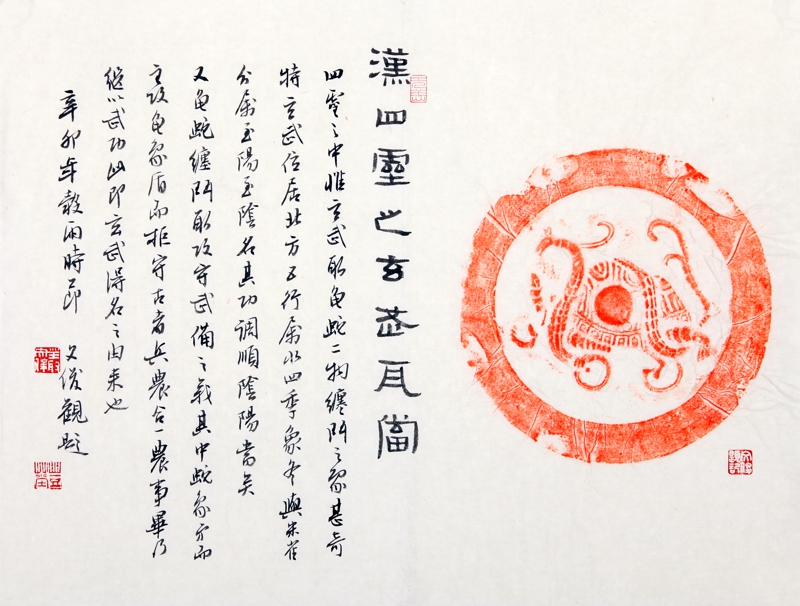 漢四靈之玄武瓦當
四靈之中惟玄武取龜蛇二物纏鬥之象甚奇
特玄武位居北方五行屬水四季象冬與朱雀
分屬至陽至陰名其功調順陰陽當矣
又龜蛇纏鬥取攻守武備之義其中蛇象矛而
主攻龜象盾而拒守古者兵農合一農事畢乃
繼以武功此即玄武得名之由來也
辛卯年穀雨時節
文俊觀題